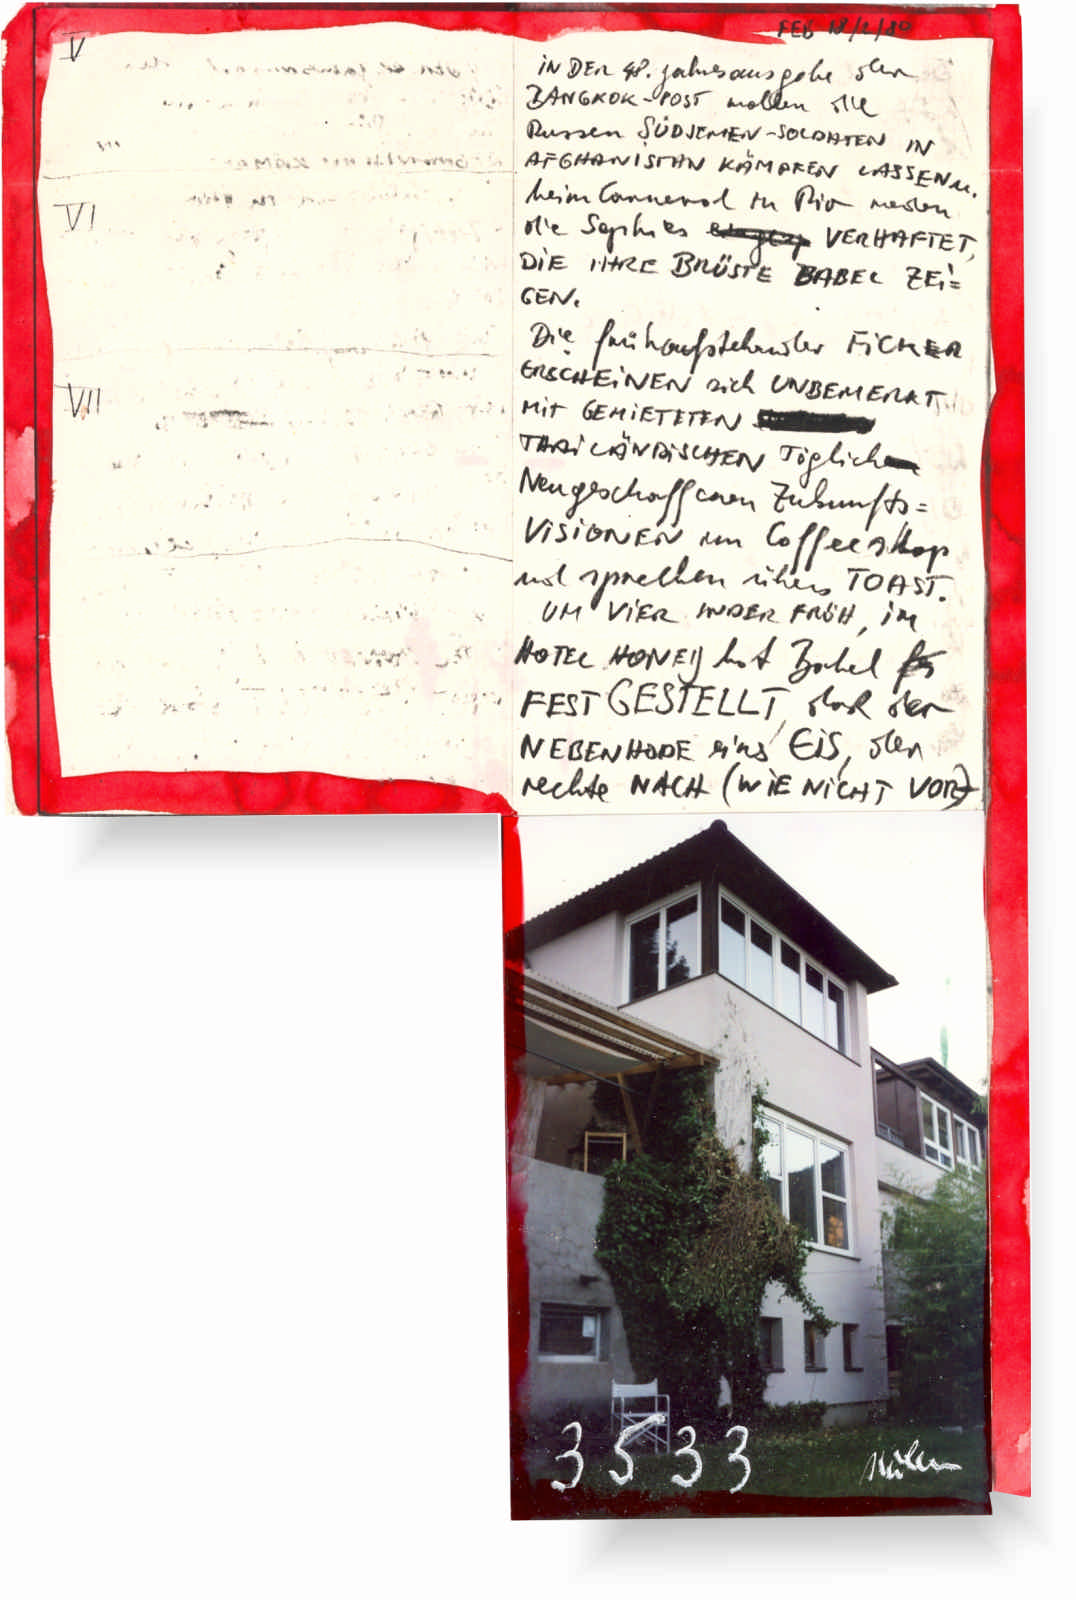 V
VI
VII
FEB 18/2/80
IN DER 48. Jahresausgabe der
BANGKOK-POST wollen die
Russen SÜDJEMEN-SOLDATEN IN
AFGHANISTAN KÄMPFEN LASSEN u.
beim Carneval in Rio werden
die Sophies VERHAFTET,
DIE IHRE BRÜSTE BABEL ZEI=
GEN.
Die frühaufstehender FICKER
ERSCHEINEN sich UNBEMERKT
MIT GEMIETETEN
THAILÄNDISCHEN Täglich
Neugeschaffenen Zukunfts=
VISIONEN im Coffeeshop
und sprechen übers TOAST.
UM VIER IN DER FRÜH, im
HOTEL HONEY hat Babel
FEST GESTELLT, daß der
NEBENHODE eins EIS, der
rechte NACH (WIE NICHT VOR)
3533